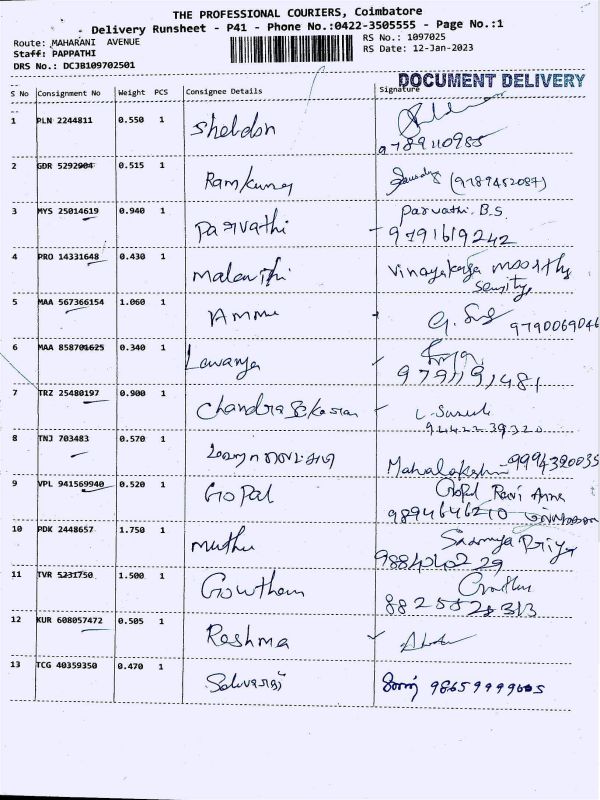 THE PROFESSIONAL COURIERS, Coimbatore
Delivery Runsheet - P41 - Phone No.:0422-3505555 - Page No.:1
Route: MAHARANI AVENUE
RS No.: 1097025
Staff: PAPPATHI
RS Date: 12-Jan-2023
DRS No.: DCJB109702501
DOCUMENT DELIVERY
S No Consignment No Weight PCS Consignee Details Signature
1 PLN 2244811 0.550 1 Sheldon
9789110985
2 GDR 5292904 0.515 1 Ramkumar (9789452087)
3 MYS 25014619 0.940 1 Parvathi Parvathi. B.S.
9791619242
4 PRO 14331648 0.430 1 Malarvizhi Vinayakaga moorthy
Security
5 MAA 567366154 1.060 1 Ammu
9790069046
6 MAA 858701625 0.340 1 Lavanya
9791191481
7 TRZ 25480197 0.900 1 Chandra Sekaran L. Suresh
94422 39320
8 TNJ 703483 0.570 1 Mahalakshmi - 9994320035
9 VPL 941569940 0.520 1 Gopal Gopal Ravi Anna
9894646210
10 PDK 2448657 1.750 1 Muthu Sowmya Priya
9884010229
11 TVR 5231750 1.500 1 Gowtham Gowtham
8825528313
12 KUR 608057472 0.505 1 Reshma
13 TCG 40359350 0.470 1 Selvaraj